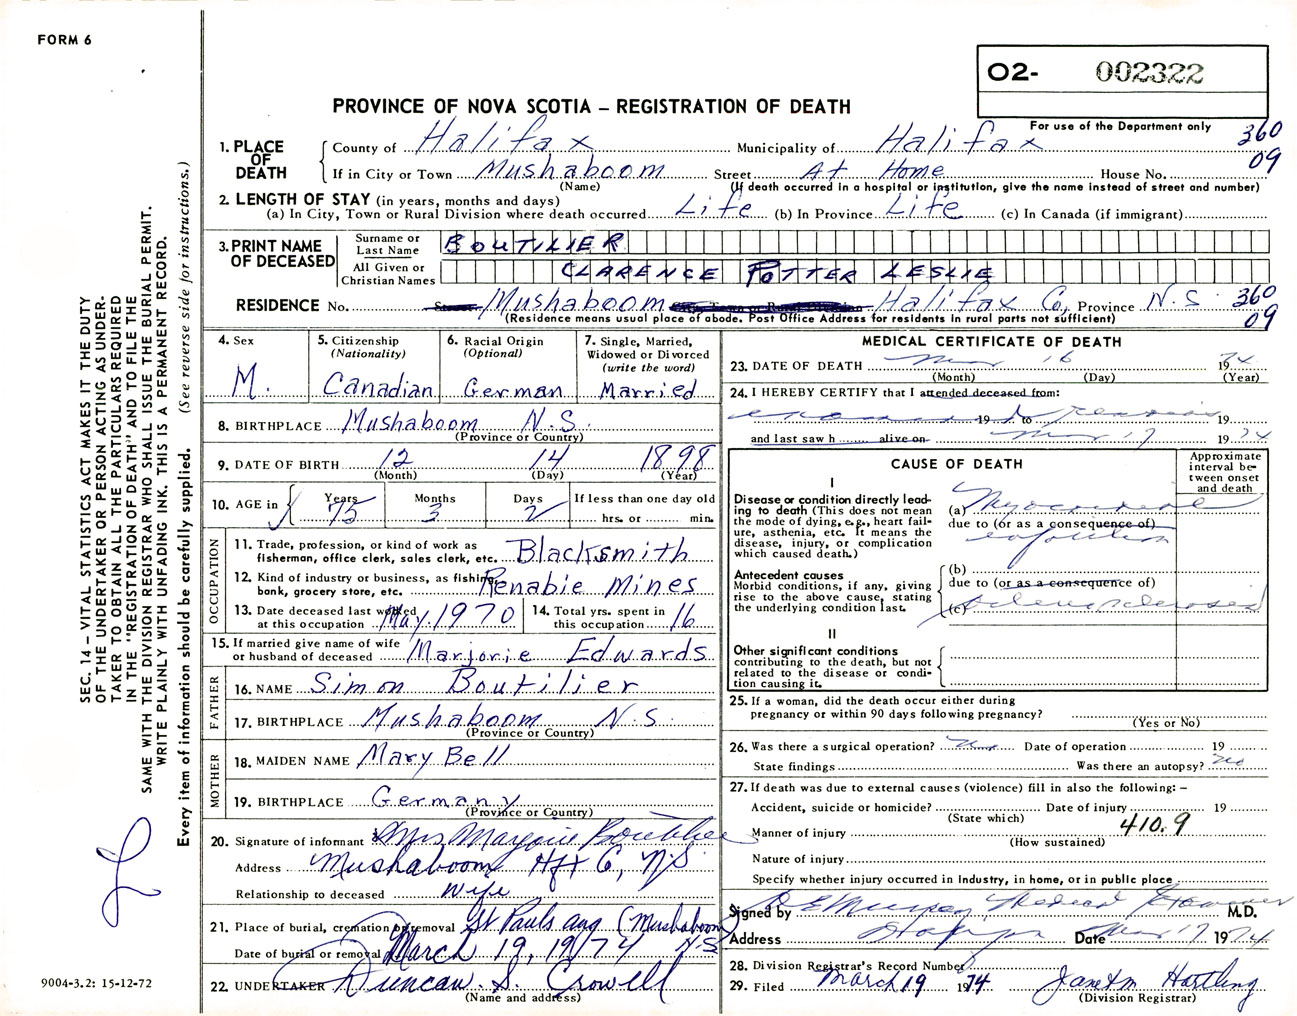 FORM 6
O2- 002322
PROVINCE OF NOVA SCOTIA – REGISTRATION OF DEATH
For use of the Department only
360
09
1. PLACE OF DEATH
County of Halifax Municipality of Halifax
If in City or Town Mushaboom Street At Home House No.
(Name) (If death occurred in a hospital or institution, give the name instead of street and number)
2. LENGTH OF STAY (in years, months and days)
(a) In City, Town or Rural Division where death occurred Life (b) In Province Life (c) In Canada (if immigrant)
3. PRINT NAME OF DECEASED
Surname or Last Name BOUTILIER
All Given or Christian Names CLARENCE POTTER LESLIE
RESIDENCE No. Mushaboom Halifax Co, Province N.S. 360
(Residence means usual place of abode. Post Office Address for residents in rural parts not sufficient) 09
4. Sex
M.
5. Citizenship
(Nationality)
Canadian
6. Racial Origin
(Optional)
German
7. Single, Married,
Widowed or Divorced
(write the word)
Married
8. BIRTHPLACE Mushaboom N.S.
(Province or Country)
9. DATE OF BIRTH 12 14 1898
(Month) (Day) (Year)
10. AGE in
Years Months Days If less than one day old
75 3 2 hrs. or min.
OCCUPATION
11. Trade, profession, or kind of work as
fisherman, office clerk, sales clerk, etc. Blacksmith
12. Kind of industry or business, as fishing,
bank, grocery store, etc. Renabie Mines
13. Date deceased last worked
at this occupation May. 1970
14. Total yrs. spent in
this occupation 16
15. If married give name of wife
or husband of deceased Marjorie Edwards
FATHER
16. NAME Simon Boutilier
17. BIRTHPLACE Mushaboom N.S.
(Province or Country)
MOTHER
18. MAIDEN NAME Mary Bell
19. BIRTHPLACE Germany
(Province or Country)
20. Signature of informant Mrs Marjorie Boutilier
Address Mushaboom Hfx Co, N.S.
Relationship to deceased Wife
21. Place of burial, cremation or removal St Pauls ang (Mushaboom
Date of burial or removal March 19, 1974 N.S
22. UNDERTAKER Duncan. S. Crowell
(Name and address)
MEDICAL CERTIFICATE OF DEATH
23. DATE OF DEATH Mar 16 1974
(Month) (Day) (Year)
24. I HEREBY CERTIFY that I attended deceased from:
19 to 19
and last saw h alive on Mar 17 1974
CAUSE OF DEATH
Approximate
interval be-
tween onset
and death
I
Disease or condition directly lead-
ing to death (This does not mean
the mode of dying, e.g., heart fail-
ure, asthenia, etc. It means the
disease, injury, or complication
which caused death.)
(a) Myocardial
due to (or as a consequence of)
Antecedent causes
Morbid conditions, if any, giving
rise to the above cause, stating
the underlying condition last.
(b)
due to (or as a consequence of)
(c)
II
Other significant conditions
contributing to the death, but not
related to the disease or condi-
tion causing it.
25. If a woman, did the death occur either during
pregnancy or within 90 days following pregnancy?
(Yes or No)
26. Was there a surgical operation? no Date of operation 19
State findings Was there an autopsy? no
27. If death was due to external causes (violence) fill in also the following: –
Accident, suicide or homicide? Date of injury 19
(State which)
410.9
Manner of injury
(How sustained)
Nature of injury
Specify whether injury occurred in Industry, in home, or in public place
Signed by Medical Examiner M.D.
Address Date Mar 17 1974
28. Division Registrar's Record Number
29. Filed March 19 1974 Janet M Hartling
(Division Registrar)
SEC. 14 – VITAL STATISTICS ACT MAKES IT THE DUTY
OF THE UNDERTAKER OR PERSON ACTING AS UNDER-
TAKER TO OBTAIN ALL THE PARTICULARS REQUIRED
IN THE "REGISTRATION OF DEATH" AND TO FILE THE
SAME WITH THE DIVISION REGISTRAR WHO SHALL ISSUE THE BURIAL PERMIT.
WRITE PLAINLY WITH UNFADING INK. THIS IS A PERMANENT RECORD.
Every item of information should be carefully supplied. (See reverse side for instructions.)
9004-3.2: 15-12-72